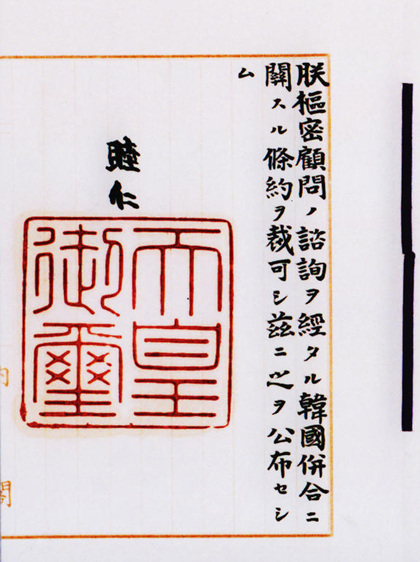 朕樞密顧問ノ諮詢ヲ經タル韓國併合ニ
關スル條約ヲ裁可シ茲ニ之ヲ公布セシ
ム
睦仁
天皇
御璽
内
閣